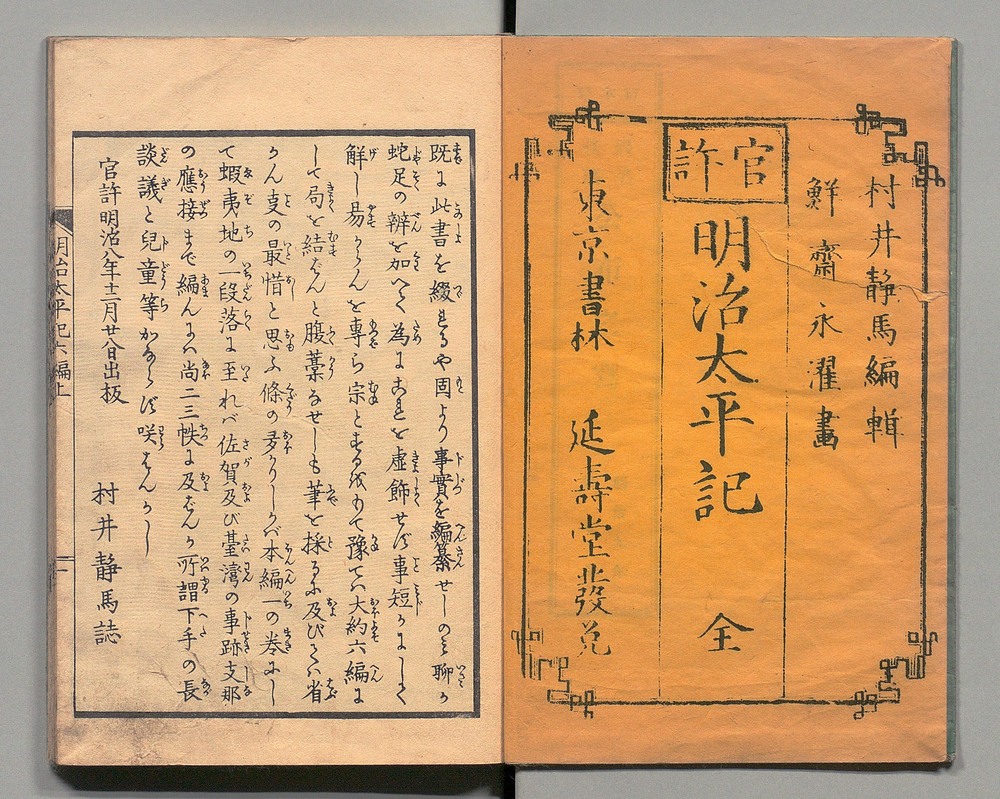 村井靜馬編輯
鮮齋永濯畫
官許
明治太平記 全
東京書林 延壽堂發兌
既に此書を綴るや固より事實を編纂せしのミ聊か
蛇足の辨を加へて為にするを虚飾せず事短かにして
解し易からんを専ら宗とするをもて豫てハ大約六編に
して局を結ばんと腹藁なせしも筆を採るに及びてハ省
かん支の最惜と思ふ條の多かりしかバ本編一の巻にし
て蝦夷地の一段落に至れバ佐賀及び臺灣の事跡支那
の應接まで編んにハ尚二三帙に及ばんか所謂下手の長
談議と兒童等かならず咲はんかし
官許明治八年十二月廿八日出板
村井靜馬誌
明治太平記六編上
一